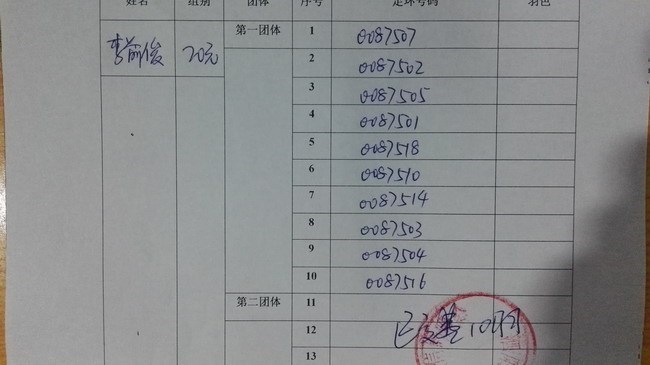 姓名 组别 团体 序号 足环号码 羽色
李前俊 20元 第一团体 1 0087507
2 0087502
3 0087505
4 0087501
5 0087518
6 0087510
7 0087514
8 0087503
9 0087504
10 0087516
第二团体 11
12
13